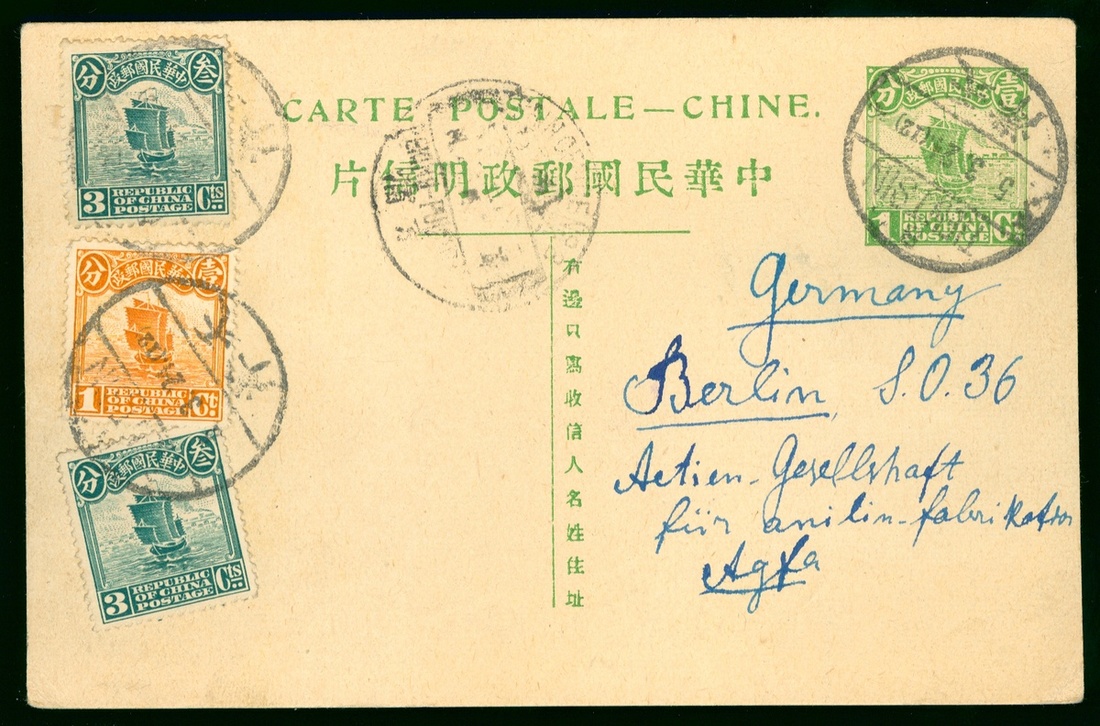 中華民國郵政
叁
分
REPUBLIC
OF CHINA
POSTAGE
3 Cts
CARTE POSTALE—CHINE.
中華民國郵政明信片
中華民國郵政
壹
分
REPUBLIC
OF CHINA
POSTAGE
1 Ct
中華民國郵政
壹
分
REPUBLIC
OF CHINA
POSTAGE
1 Ct
中華民國郵政
叁
分
REPUBLIC
OF CHINA
POSTAGE
3 Cts
右邊只寫收信人名姓住址
Germany
Berlin, S.O. 36
Actien-Gesellshaft
für anilin-fabrikation
Agfa